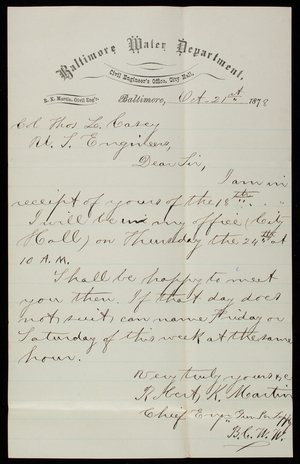 Baltimore Water Department,
Civil Engineer's Office, City Hall,
R. K. Martin, Civil Eng'r.
Baltimore, Oct. 21st 1878
Col Thos L. Casey
U. S. Engineers,
Dear Sir,
I am in
receipt of yours of the 18th.
I will be in my office (City
Hall) on Thursday the 24th at
10 A.M.
Shall be happy to meet
you then. If that day does
not suit can name Friday or
Saturday of this week at the same
hour.
Very truly yours &c
Robert K. Martin
Chief Engr
B.C.W.W.